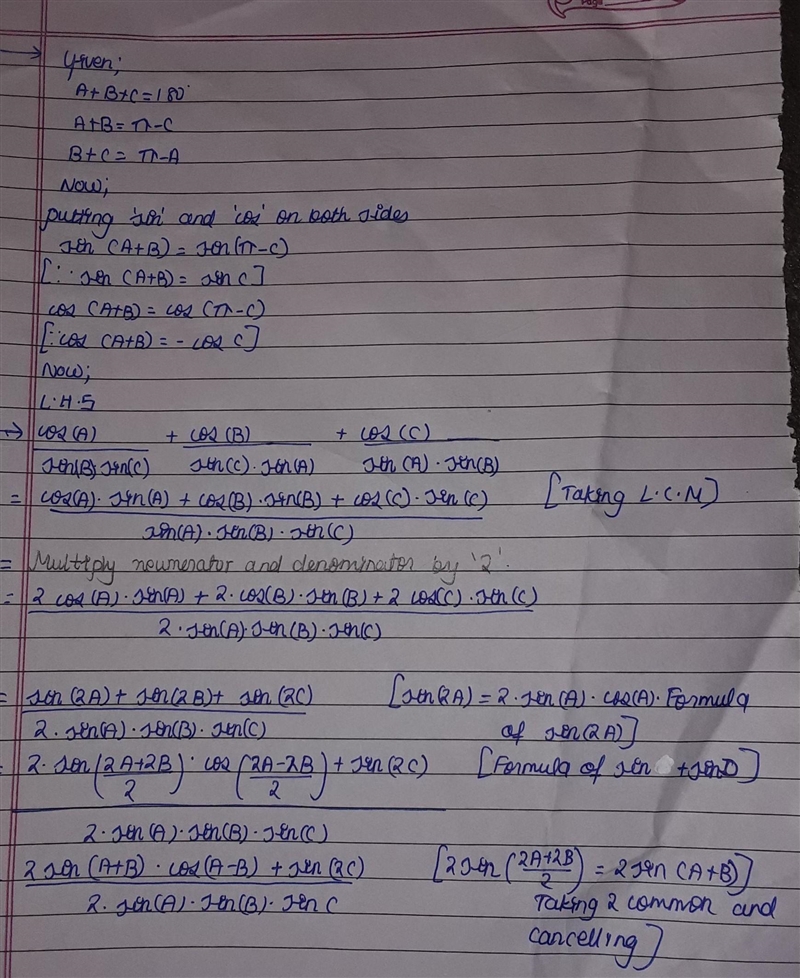 Page
→ Given;
A+B+C=180°
A+B=π-C
B+C=π-A
Now;
putting 'sin' and 'cos' on both sides
sin (A+B)=sin(π-C)
[∵ sin (A+B)= sin C]
cos (A+B)=cos (π-C)
[∵cos (A+B)=-cos C]
Now;
L.H.S
→ cos(A)/(sin(B)·sin(C)) + cos(B)/(sin(C)·sin(A)) + cos(C)/(sin(A)·sin(B))
= (cos(A)·sin(A)+cos(B)·sin(B)+cos(C)·sin(C))/(sin(A)·sin(B)·sin(C)) [Taking L.C.M]
= Multiply neumerator and denominator by '2'.
= (2 cos(A)·sin(A)+2·cos(B)·sin(B)+2 cos(C)·sin(C))/(2·sin(A)·sin(B)·sin(C))
= (sin(2A)+sin(2B)+sin(2C))/(2·sin(A)·sin(B)·sin(C)) [sin(2A)=2·sin(A)·cos(A)·Formula
of sin(2A)]
= (2·sin((2A+2B)/2)·cos((2A-2B)/2)+sin(2C))/(2·sin(A)·sin(B)·sin(C)) [Formula of sin +sinD]
(2sin(A+B)·cos(A-B)+sin(2C))/(2·sin(A)·sin(B)·sin C) [2sin((2A+2B)/2)=2sin(A+B)]
Taking 2 common and
cancelling]